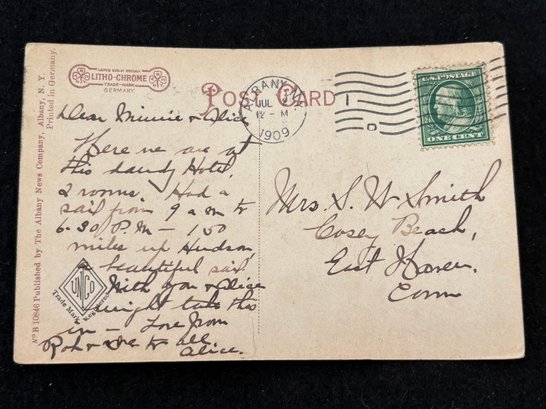 LITHO-CHROME
TRADE-MARK
GERMANY.
POST CARD
ALBANY, N.Y.
JUL
12-M
1909
U.S. POSTAGE
ONE CENT
Dear Minnie + Alice
Here we are at
this dandy Hotel,
2 rooms. Had a
sail from 9 am to
6-30 P.M - 150
miles up Hudson,
a beautiful sail.
Wish you + Alice
might take this
in - Love from
to all
Alice.
Mrs. S. W. Smith
Cosey Beach,
East Haven,
Conn
UNCO
Trade Mark Registered
No B 10846 Published by The Albany News Company, Albany, N. Y.
Printed in Germany.